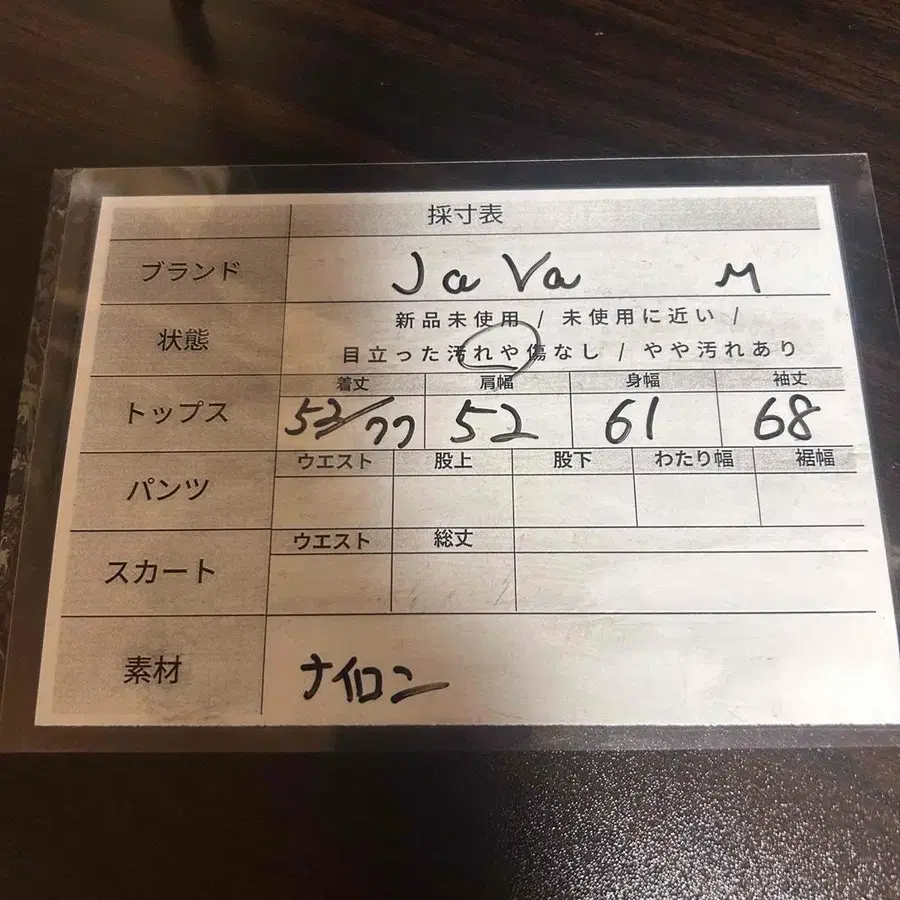 採寸表
ブランド JaVa M
状態 新品未使用 / 未使用に近い /
目立った汚れや傷なし / やや汚れあり
着丈 肩幅 身幅 袖丈
トップス 53/77 52 61 68
ウエスト 股上 股下 わたり幅 裾幅
パンツ
ウエスト 総丈
スカート
素材 ナイロン